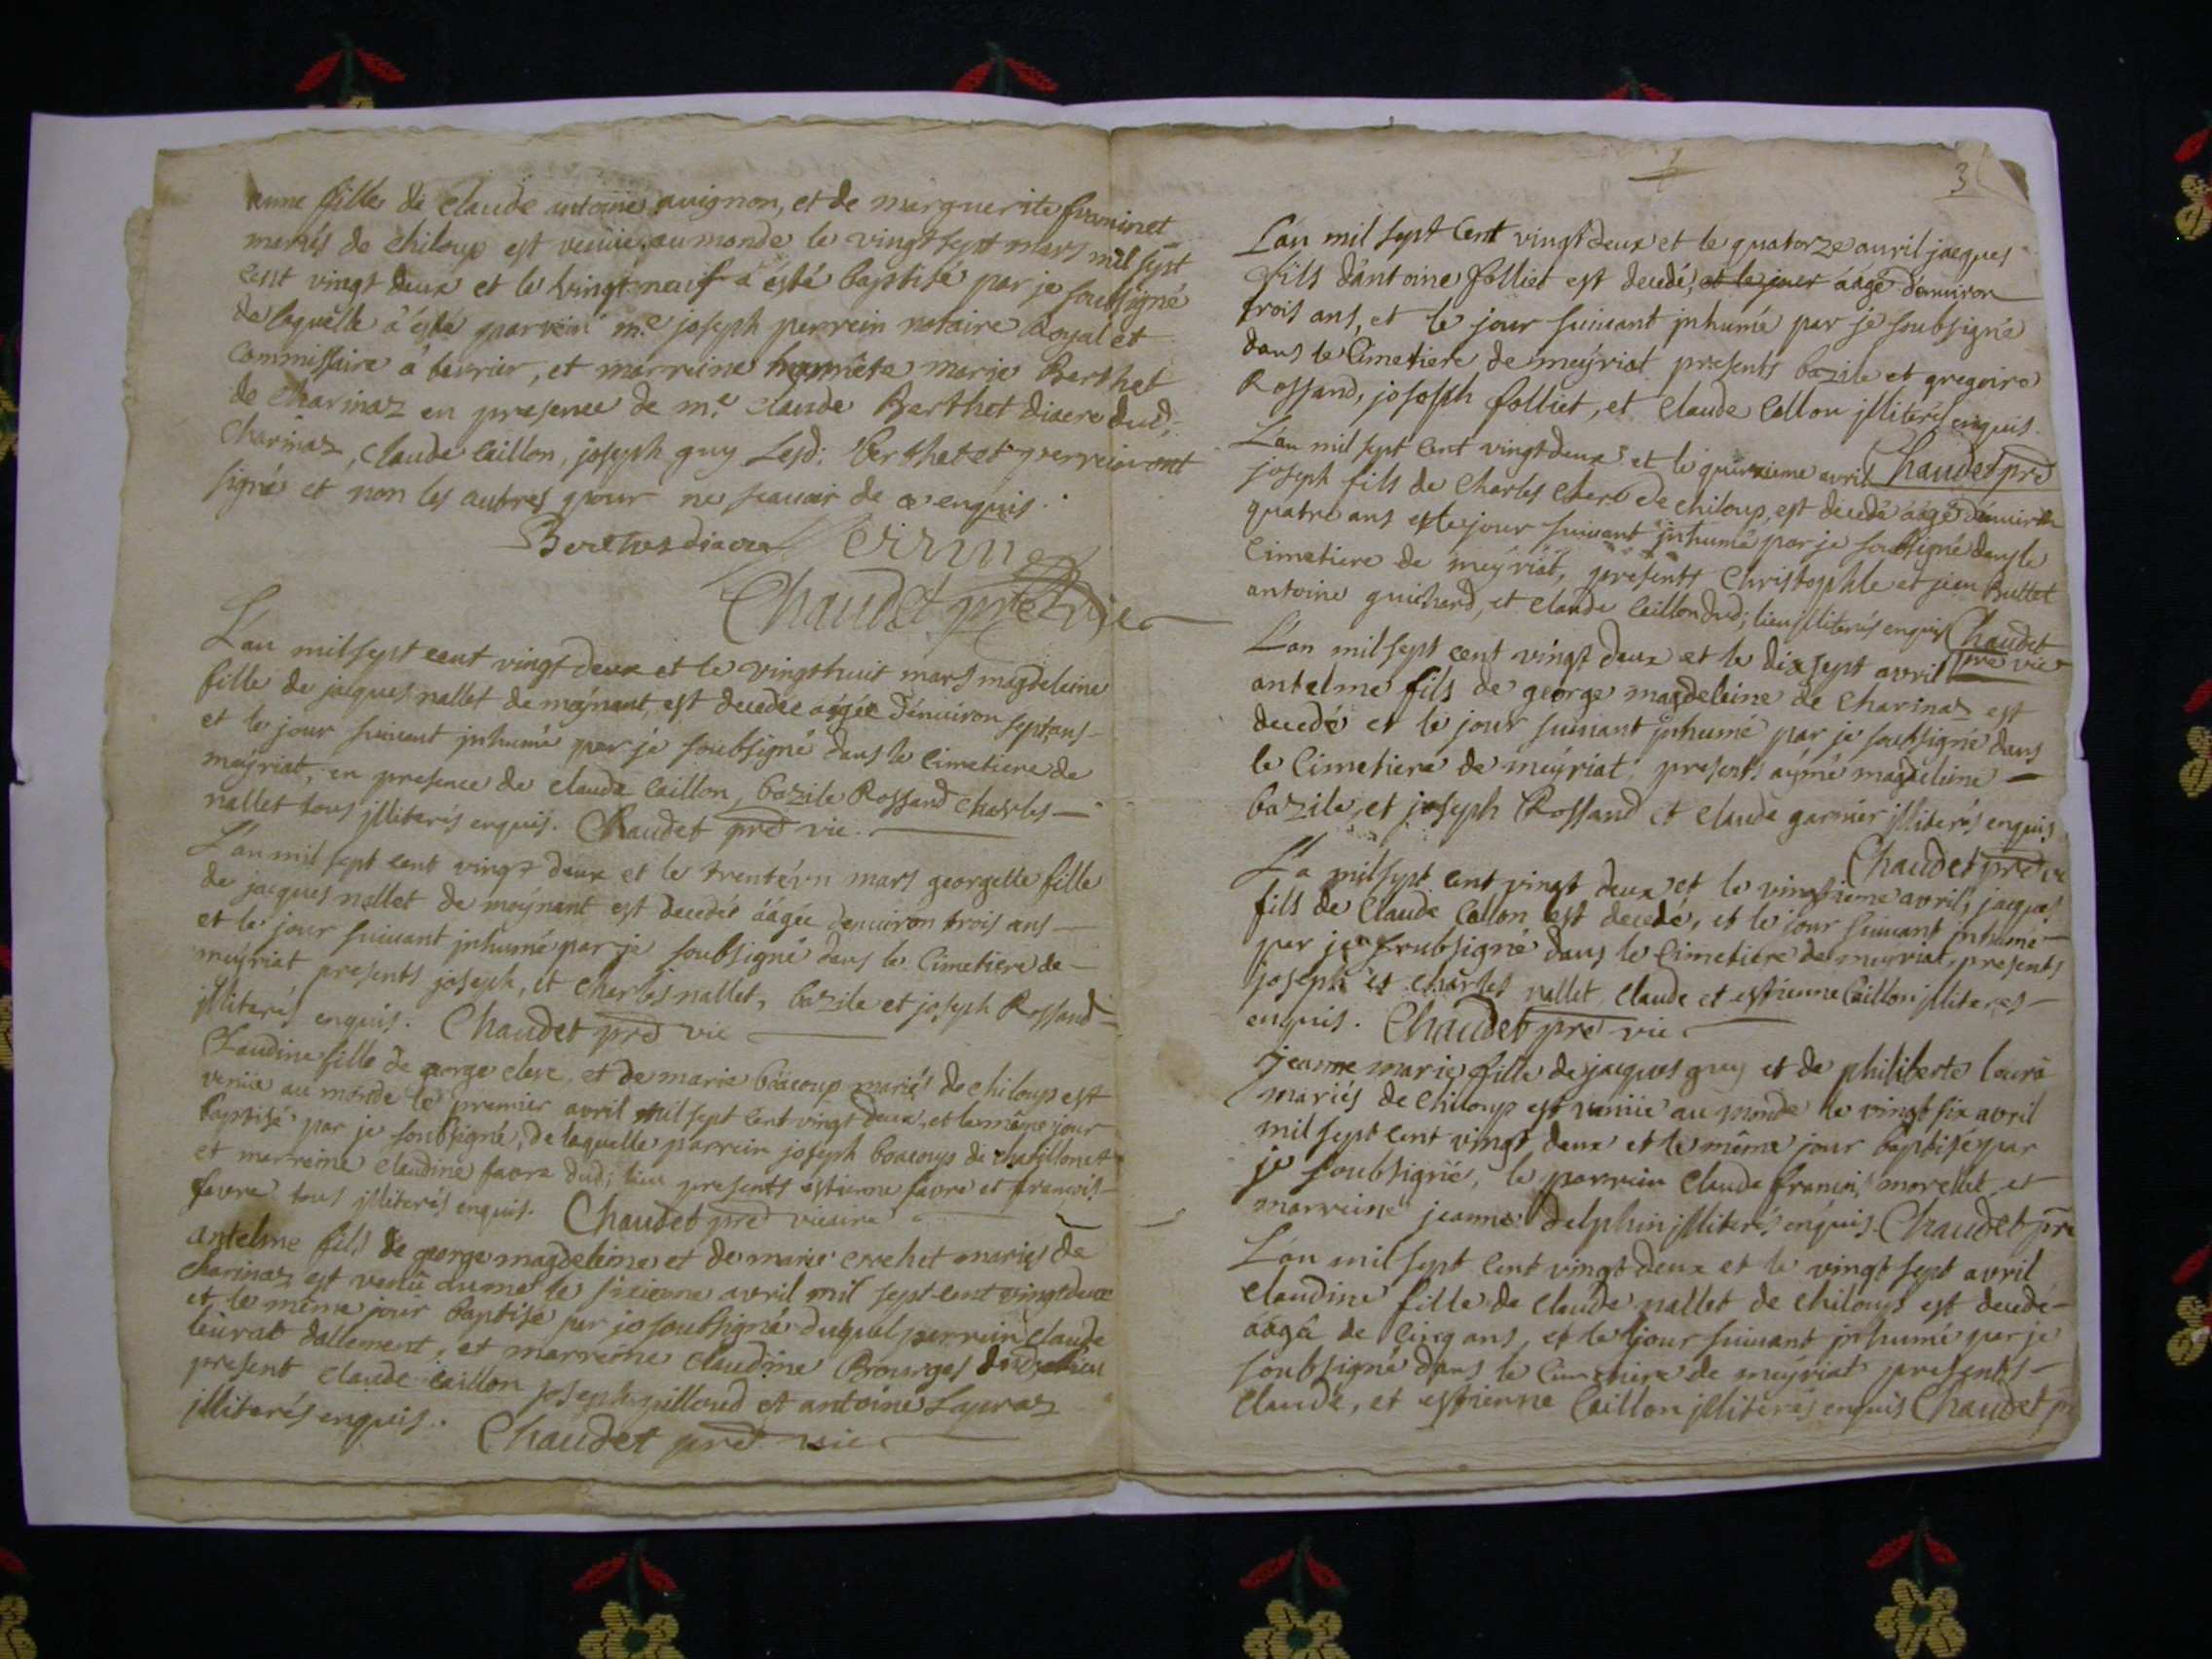 anne fille de Claude antoine avignon, et de marguerite framinet
mariés de chiloup est venüe au monde le vingt sept mars mil sept
cent vingt deux et le vingt neuf a esté baptisé par je soubsigné
de laquelle a esté parrein me joseph perrein notaire Royal et
Commissaire a terrier, et marreine honnéte marie Berthet
de Charinaz en presence de me claude Berthet diacre dud;
Charinaz, Claude Caillon, joseph guy Lesd: berthet et perrein ont
signé et non les autres pour ne scauoir de ce enquis.
Berthet diacre Perrin
Chaudet pre vic
L'an mil sept cent vingt deux et le vingt huit mars magdeleine
fille de jacques nallet de moÿnant, est decedée aágée d'enuiron sept ans
et le jour suiuant jnhumé par je soubsigné dans le Cimetiere de
meÿriat, en presence de claude Caillon, bazile Rossand Charles
nallet tous jlliterés enquis. Chaudet pre vic.
L'an mil sept cent vingt deux et le trente vn mars georgette fille
de jacques nallet de moÿnant est decedée áágée denuiron trois ans
et le jour suiuant jnhumé par je soubsigné dans le Cimetiere de
meÿriat, presents joseph, et Charles nallet, bazile et joseph Rossand
jlliterés enquis. Chaudet pre vic
Claudine fille de george clerc, et de marie boacoup mariés de chiloup est
venüe au monde le premier avril mil sept cent vingt deux, et le même jour
baptisé par je soubsigné, de laquelle parrein joseph boacoup de chatillonet
et marreine claudine favre dud; lieu presents estienne favre et francois
favre tous jlliterés enquis. Chaudet pre vicaire
antelme fils de george magdeleine et de marie mariés de
charinaz est venü au me le sixieme avril mil sept cent vingt deux
et le même jour baptisé par je soubsigné duquel parrein Claude
leurat dallement, et marreine claudine Bourges dud; lieu
present claude caillon joseph guilloud et antoine Lapraz
jlliterés enquis. Chaudet pre vic
3
L'an mil sept Cent vingt deux et le quatorze auril jacques
fils d'antoine folliet est decedé, et le jour áágé d'enuiron
trois ans, et le jour suiuant jnhumé par je soubsigné
dans le Cimetiere de meÿriat presents bazile et gregoire
Rossand, joseph folliet, et Claude Callon jlliterés enquis.
L'an mil sept Cent vingt deux et le quinzieme avril Chaudet pre
joseph fils de Charles Clerc de chiloup, est decedé áágé denuiron
quatre ans et le jour suiuant jnhumé par je soubsigné dans le
Cimetiere de meÿriat, presents Christophle et jean Buttet
antoine guichard, et claude Caillon dud; lieu jlliterés enquis Chaudet
pre vic
L'an mil sept cent vingt deux et le dix sept avril
antelme fils de george magdeleine de Charinaz est
decedé et le jour suiuant jnhumé par je soubsigné dans
le Cimetiere de meÿriat, presents aÿmé magdeleine
bazile, et joseph Rossand et claude garnier jlliterés enquis
Chaudet pre vic
L'a mil sept cent vingt deux et le vingtieme avril, jacques
fils de Claude Callon est decedé, et le jour suiuant jnhumé
par je soubsigné dans le Cimetiere de meyriat, presents
joseph et Charles nallet, Claude et estienne Caillon jlliterés
enquis. Chaudet pre vic
jeanne marie fille de jacques guy et de philiberte
mariés de Chiloup est venüe au monde le vingt six avril
mil sept cent vingt deux et le même jour baptisé par
je soubsigné, le parrein Claude francois morellet et
marreine jeanne delphin jlliterés enquis. Chaudet pre
L'an mil sept cent vingt deux et le vingt sept avril
Claudine fille de claude nallet de chiloup est decedé
aágé de Cinq ans, et le jour suiuant jnhumé par je
soubsigné dans le Cimetiere de meÿriat presents
Claude, et estienne Caillon jlliterés enquis Chaudet pre